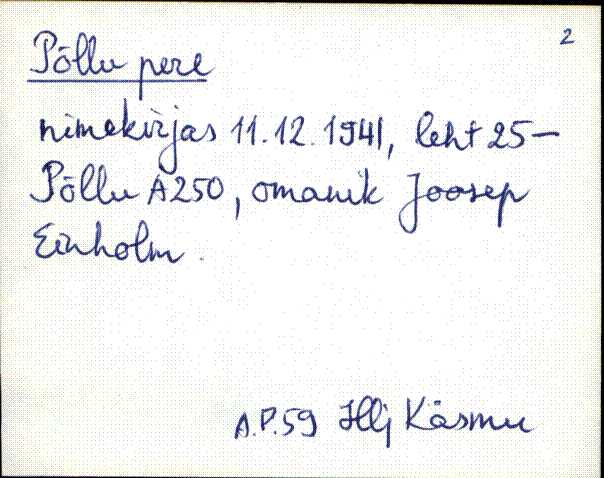 2
Põllu pere
nimekirjas 11.12.1941, leht 25-
Põllu A250, omanik Joosep
Einholm.
A.P.59 Hlj Käsmu